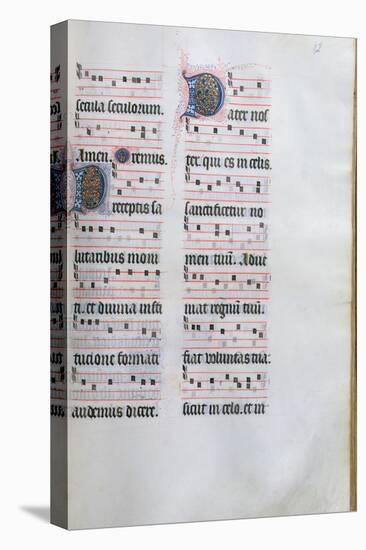 secula seculorum.
Amen. Oremus.
Preceptis sa
lutaribus moni
ti. et diuina insti
tucione formati
audemus dicere.
Pater nos
ter qui es in celis
sanctificetur no
men tuū. Adue
niat regnū tuū.
fiat voluntas tua.
sicut in celo. et in